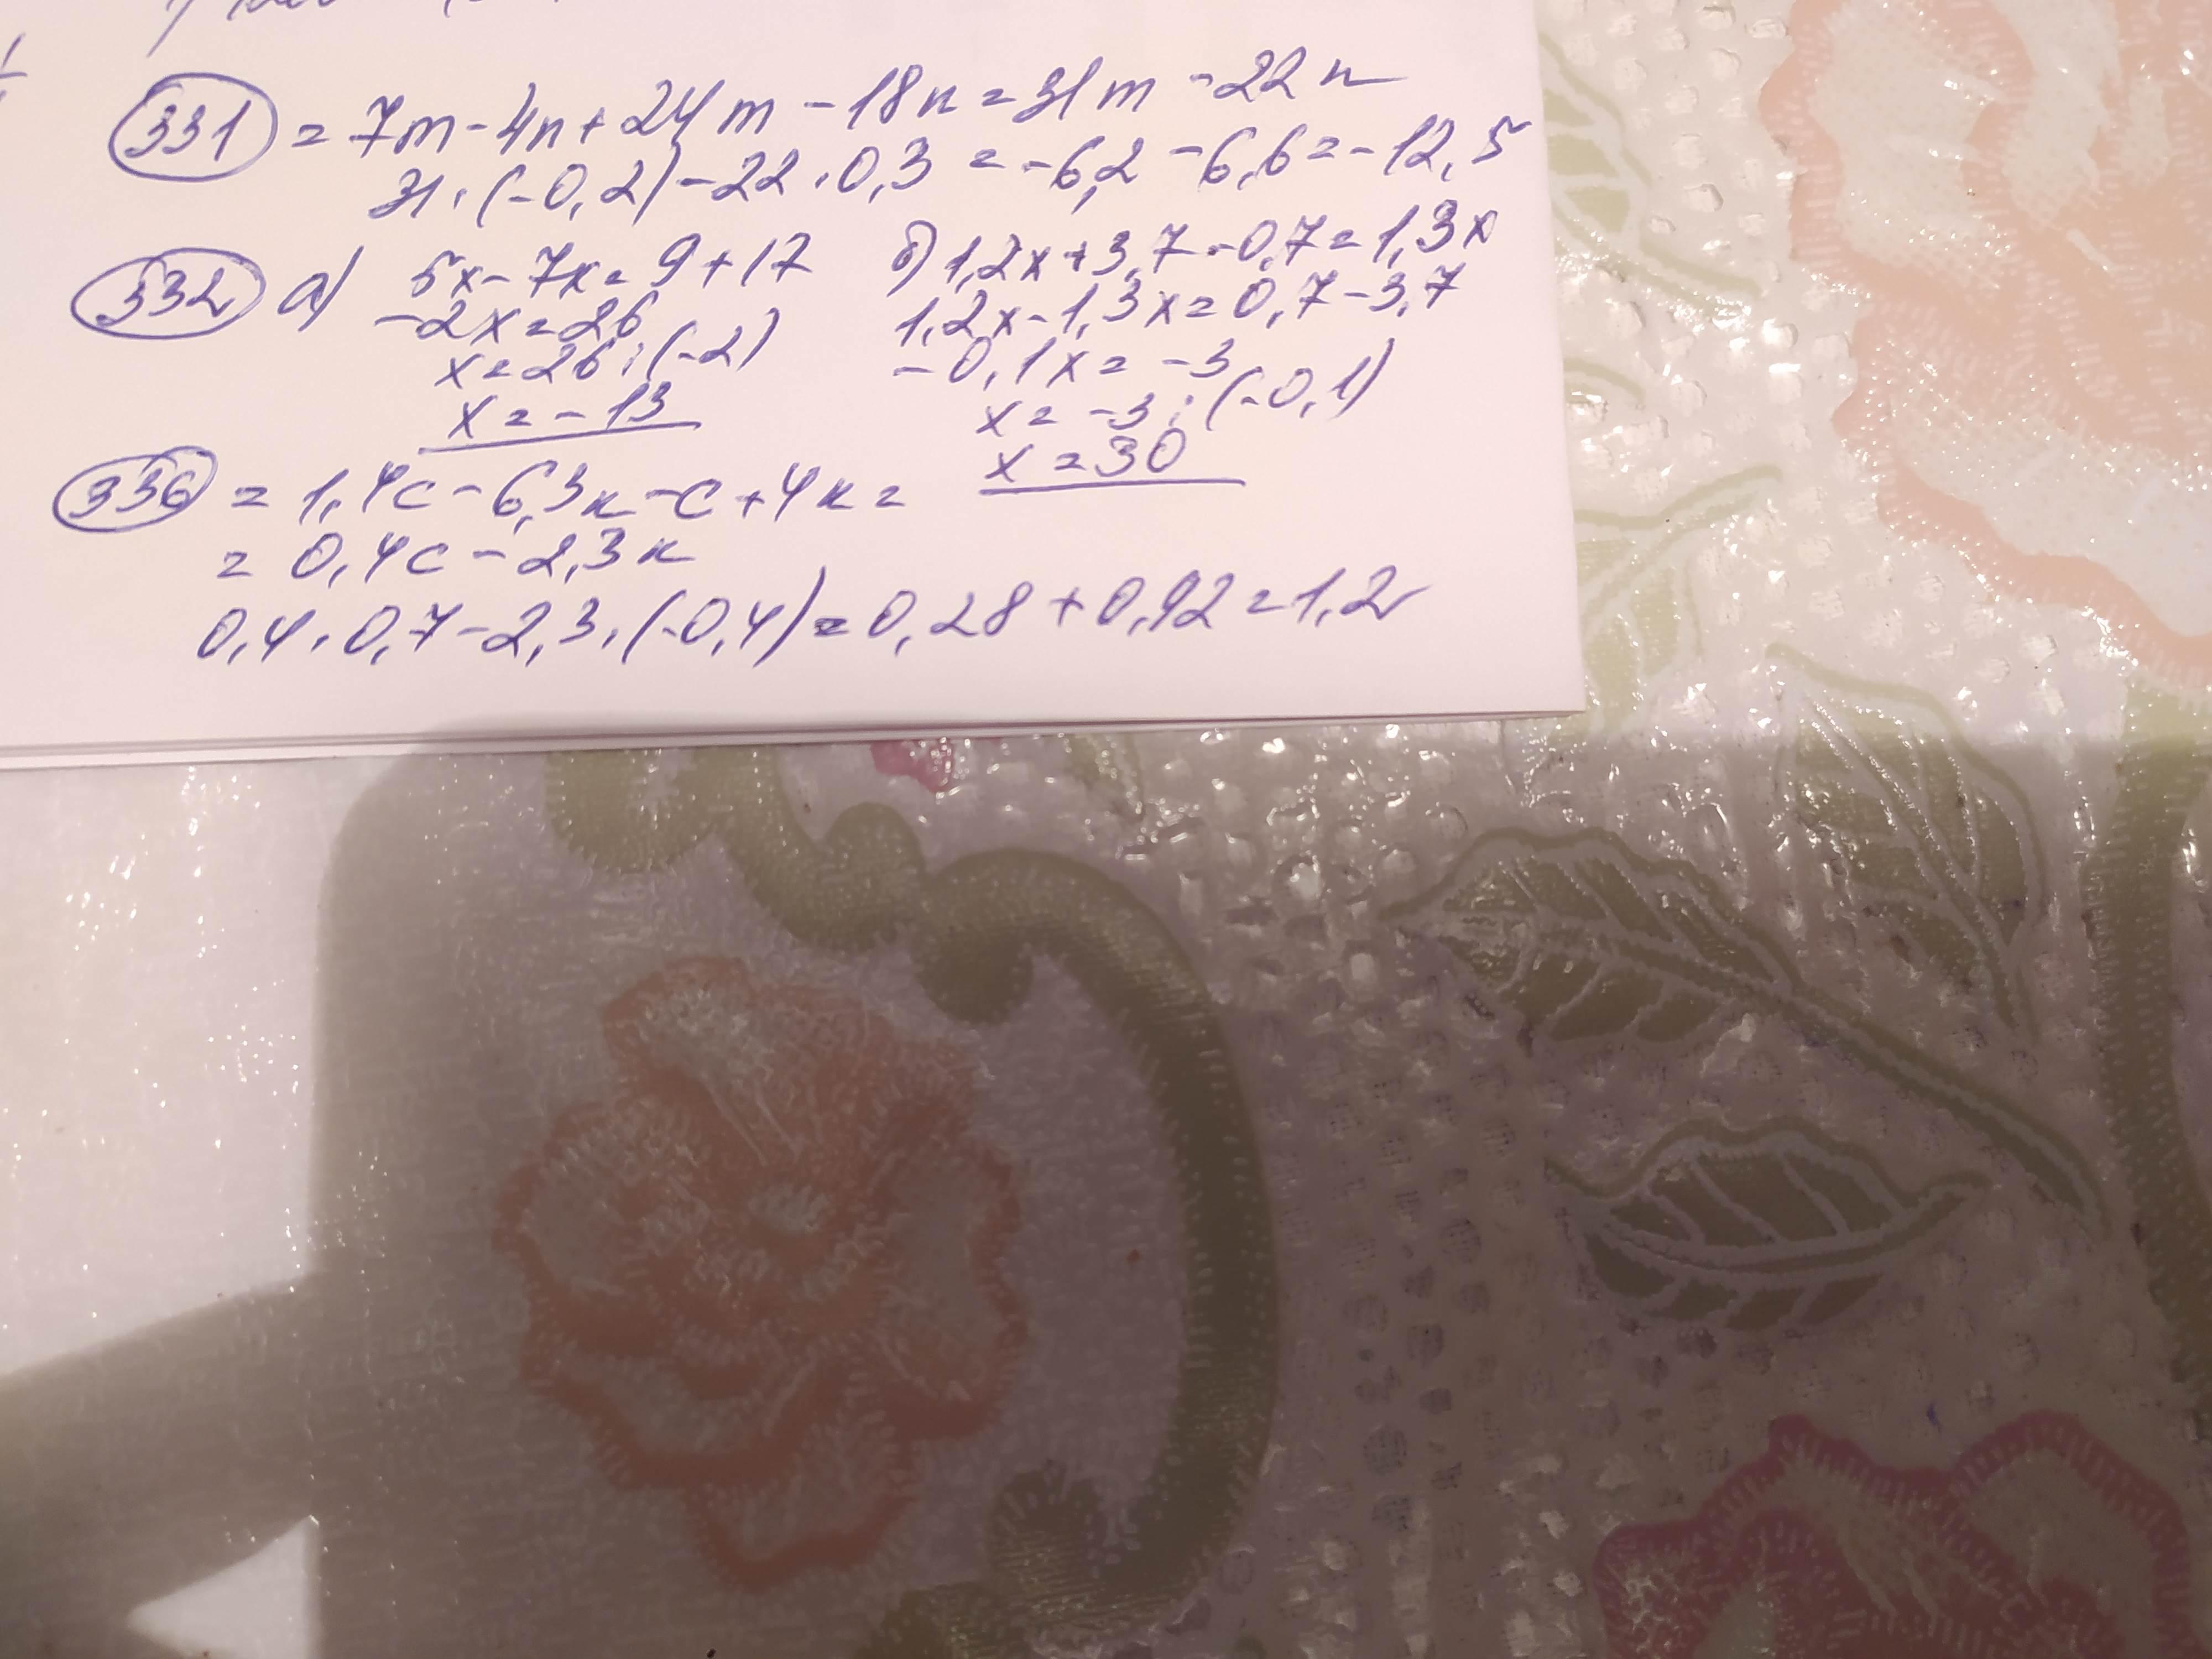 331 = 7m - 4n + 24m - 18n = 31m - 22n
31 · (-0,2) - 22 · 0,3 = -6,2 - 6,6 = -12,5
332 а) 5x - 7x = 9 + 17
-2x = 26
x = 26 : (-2)
x = -13
б) 1,2x + 3,7 - 0,7 = 1,3x
1,2x - 1,3x = 0,7 - 3,7
-0,1x = -3
x = -3 : (-0,1)
x = 30
336 = 1,4c - 6,3к - c + 4к =
= 0,4c - 2,3к
0,4 · 0,7 - 2,3 · (-0,4) = 0,28 + 0,92 = 1,2